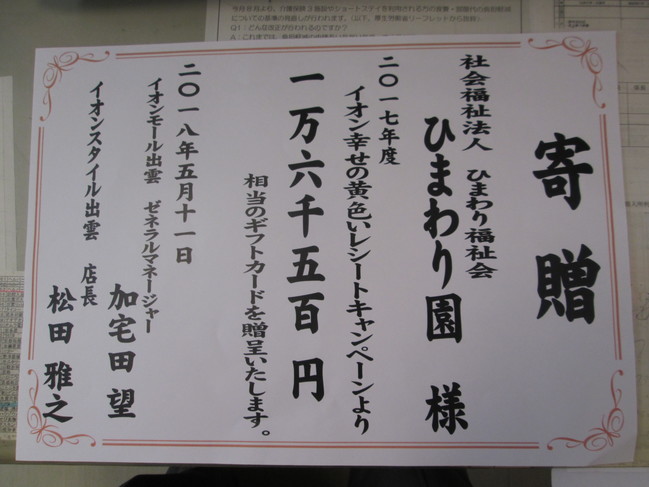 寄贈
社会福祉法人 ひまわり福祉会
ひまわり園 様
二〇一七年度
イオン幸せの黄色いレシートキャンペーンより
一万六千五百円
相当のギフトカードを贈呈いたします。
二〇一八年五月十一日
イオンモール出雲 ゼネラルマネージャー
加宅田 望
イオンスタイル出雲 店長
松田 雅之